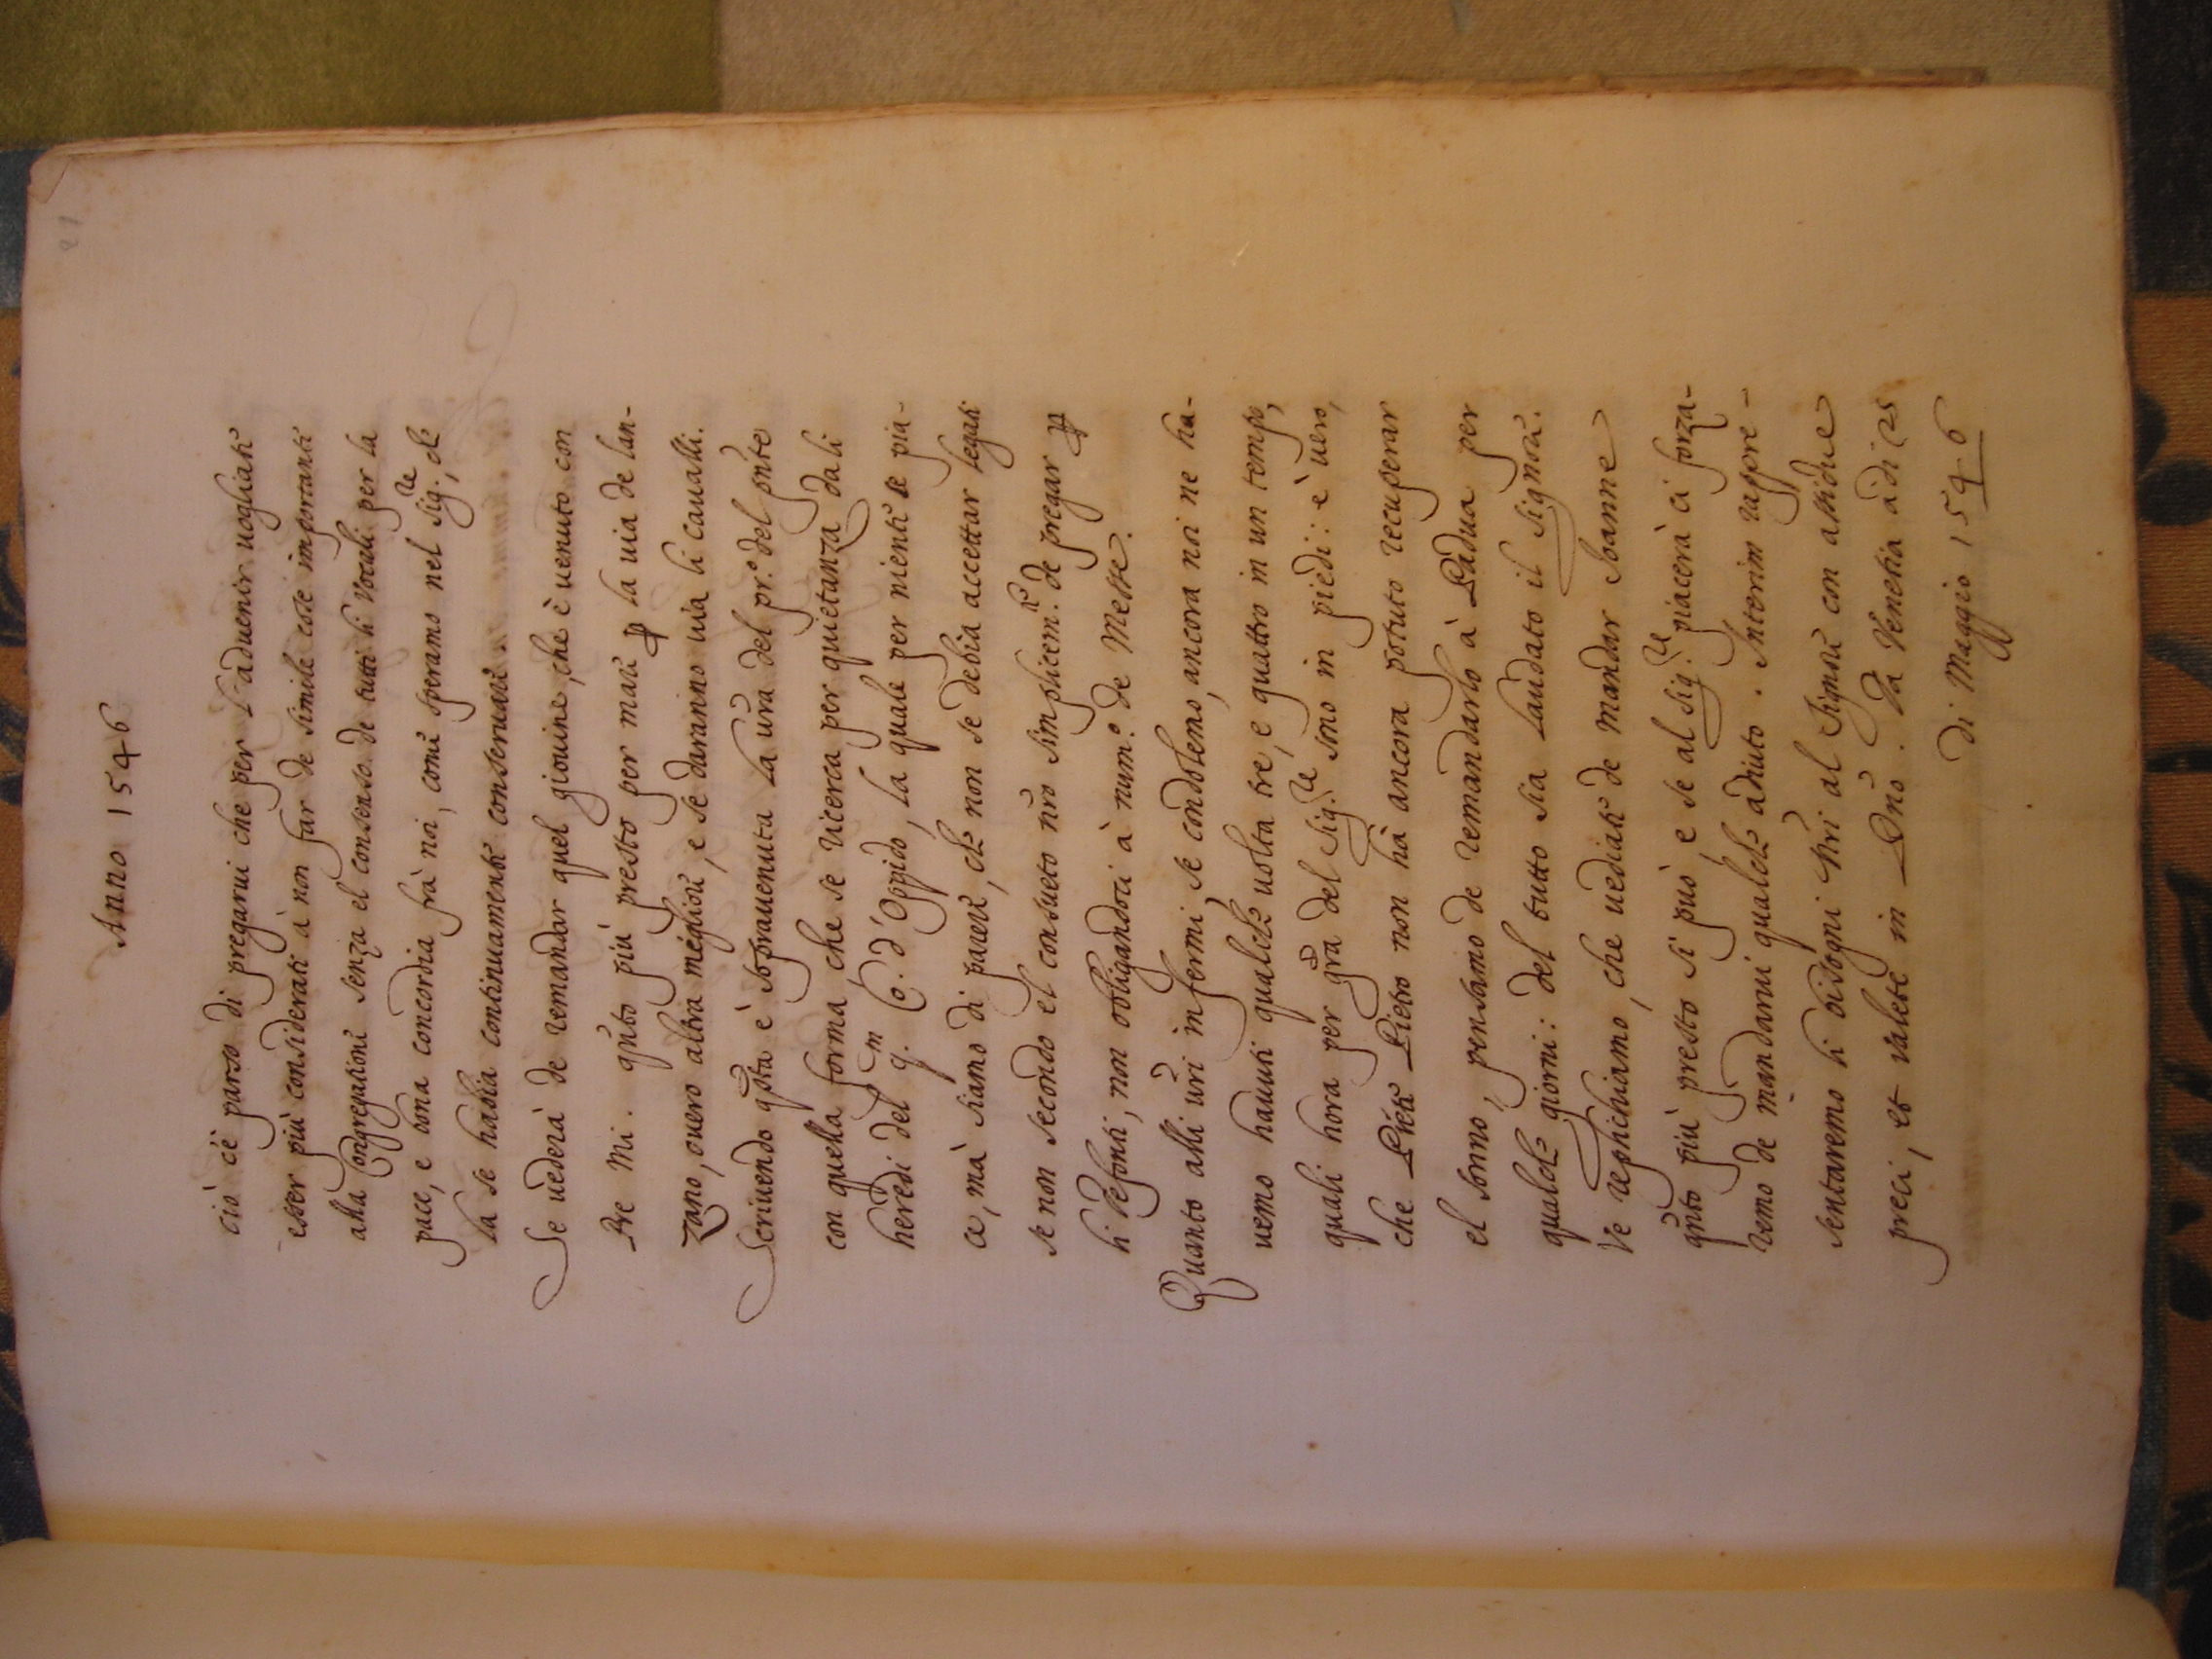 21
Anno 1546
ciò c'è parso di pregarui che per l'aduenir uogliati
esser più considerati à non far de simile cose importanti
alla Congregationi senza el consenso de tutti li Vocali per la
pace, e bona concordia frà noi, come speramo nel Sig.re, che
la se habia continuamente conseruare.
Se uederà de remandar quel giouine, che è uenuto con
Pre Mi. qnto più presto per mare ꝑ la uia de Lan-
zano, ouero altra megliore, e se daranno uia li caualli.
Scriuendo qsta è soprauenuta la ura del pr.o del pnte
con quella forma, che se ricerca per quietanza da li
heredi del q.m Co. d'Oppido, la quale per niente se pia-
ce, mà siamo di parere, che non se debia accettar legati
se non secondo el consueto nro simplicem.te de pregar ꝑ
li Defonti, non obligandoci à num.o de Messe.
Quanto alli uri infermi se condolemo, ancora noi ne ha-
uemo hauuti qualche uolta tre, e quattro in un tempo,
quali hora per gra del Sig.re sono in piedi: è uero,
che Prete Pietro non hà ancora potuto recuperar
el sonno, pensamo de remandarlo à Padua per
qualche giorni: del tutto sia laudato il Signore.
Ve replichiamo, che uediati de mandar Ioanne
qnto più presto si può, e se al Sig.re piacerà ci forza-
remo de mandarui qualche adiuto. Interim rapre-
sentaremo li bisogni uri al Signore con assidue
preci, et valete in Dno. Da Venetia adi 25
di Maggio 1546